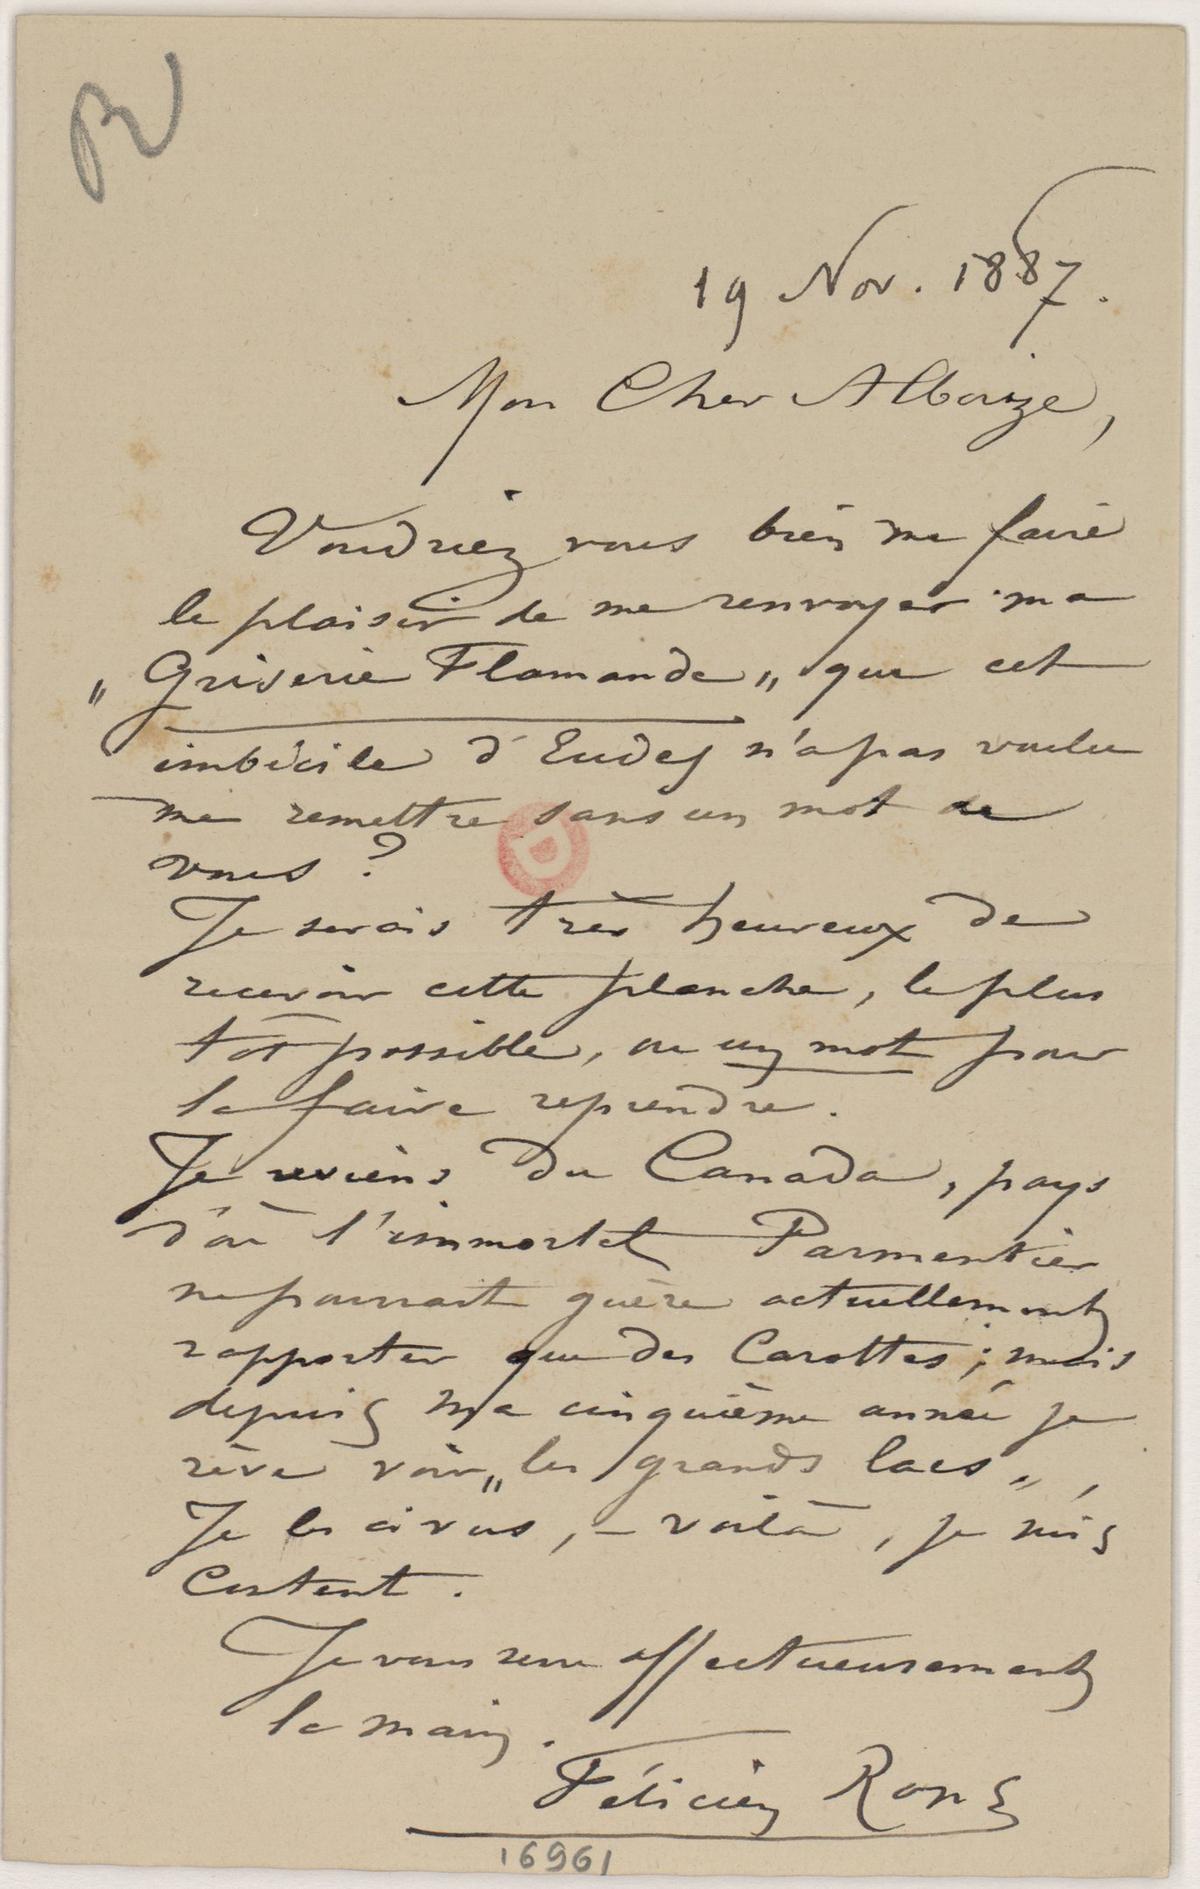 R
19 Nov. 1887.
Mon Cher Alboize,
Voudriez vous bien me faire
le plaisir de me renvoyer ma
„ Griserie Flamande „ que cet
imbécile d'Eudes n'a pas voulu
me remettre sans un mot de
vous ?
Je serais très heureux de
recevoir cette planche, le plus
tôt possible, ou un mot pour
la faire reprendre.
Je reviens du Canada, pays
d'où l'immortel Parmentier
ne pourrait guère actuellement
rapporter que des Carottes ; mais
depuis ma cinquième année je
rêve voir „ les grands lacs „ ,
Je les ai vus, – voilà, je suis
Content.
Je vous serre affectueusement
la main.
Félicien Rops
16961